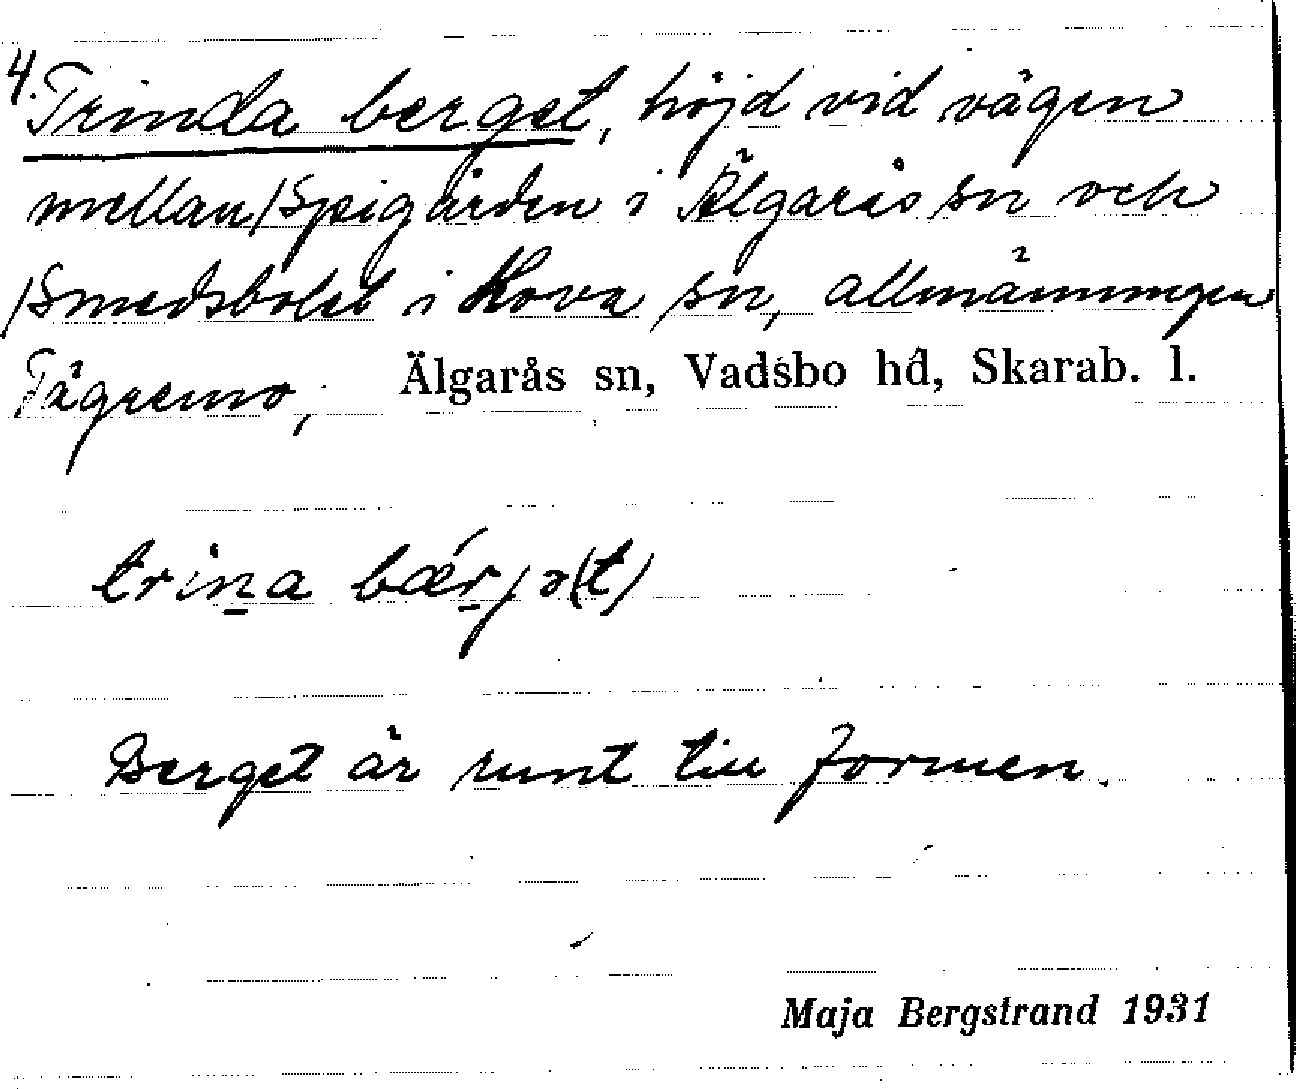 4. Trinda berget, höjd vid vägen
mellan Spigården i Älgarås sn och
Smedsbolet i Hova sn, allmänningen
Tägremo, Älgarås sn, Vadsbo hd, Skarab. l.
trina bærjə(t)
Berget är runt till formen.
Maja Bergstrand 1931